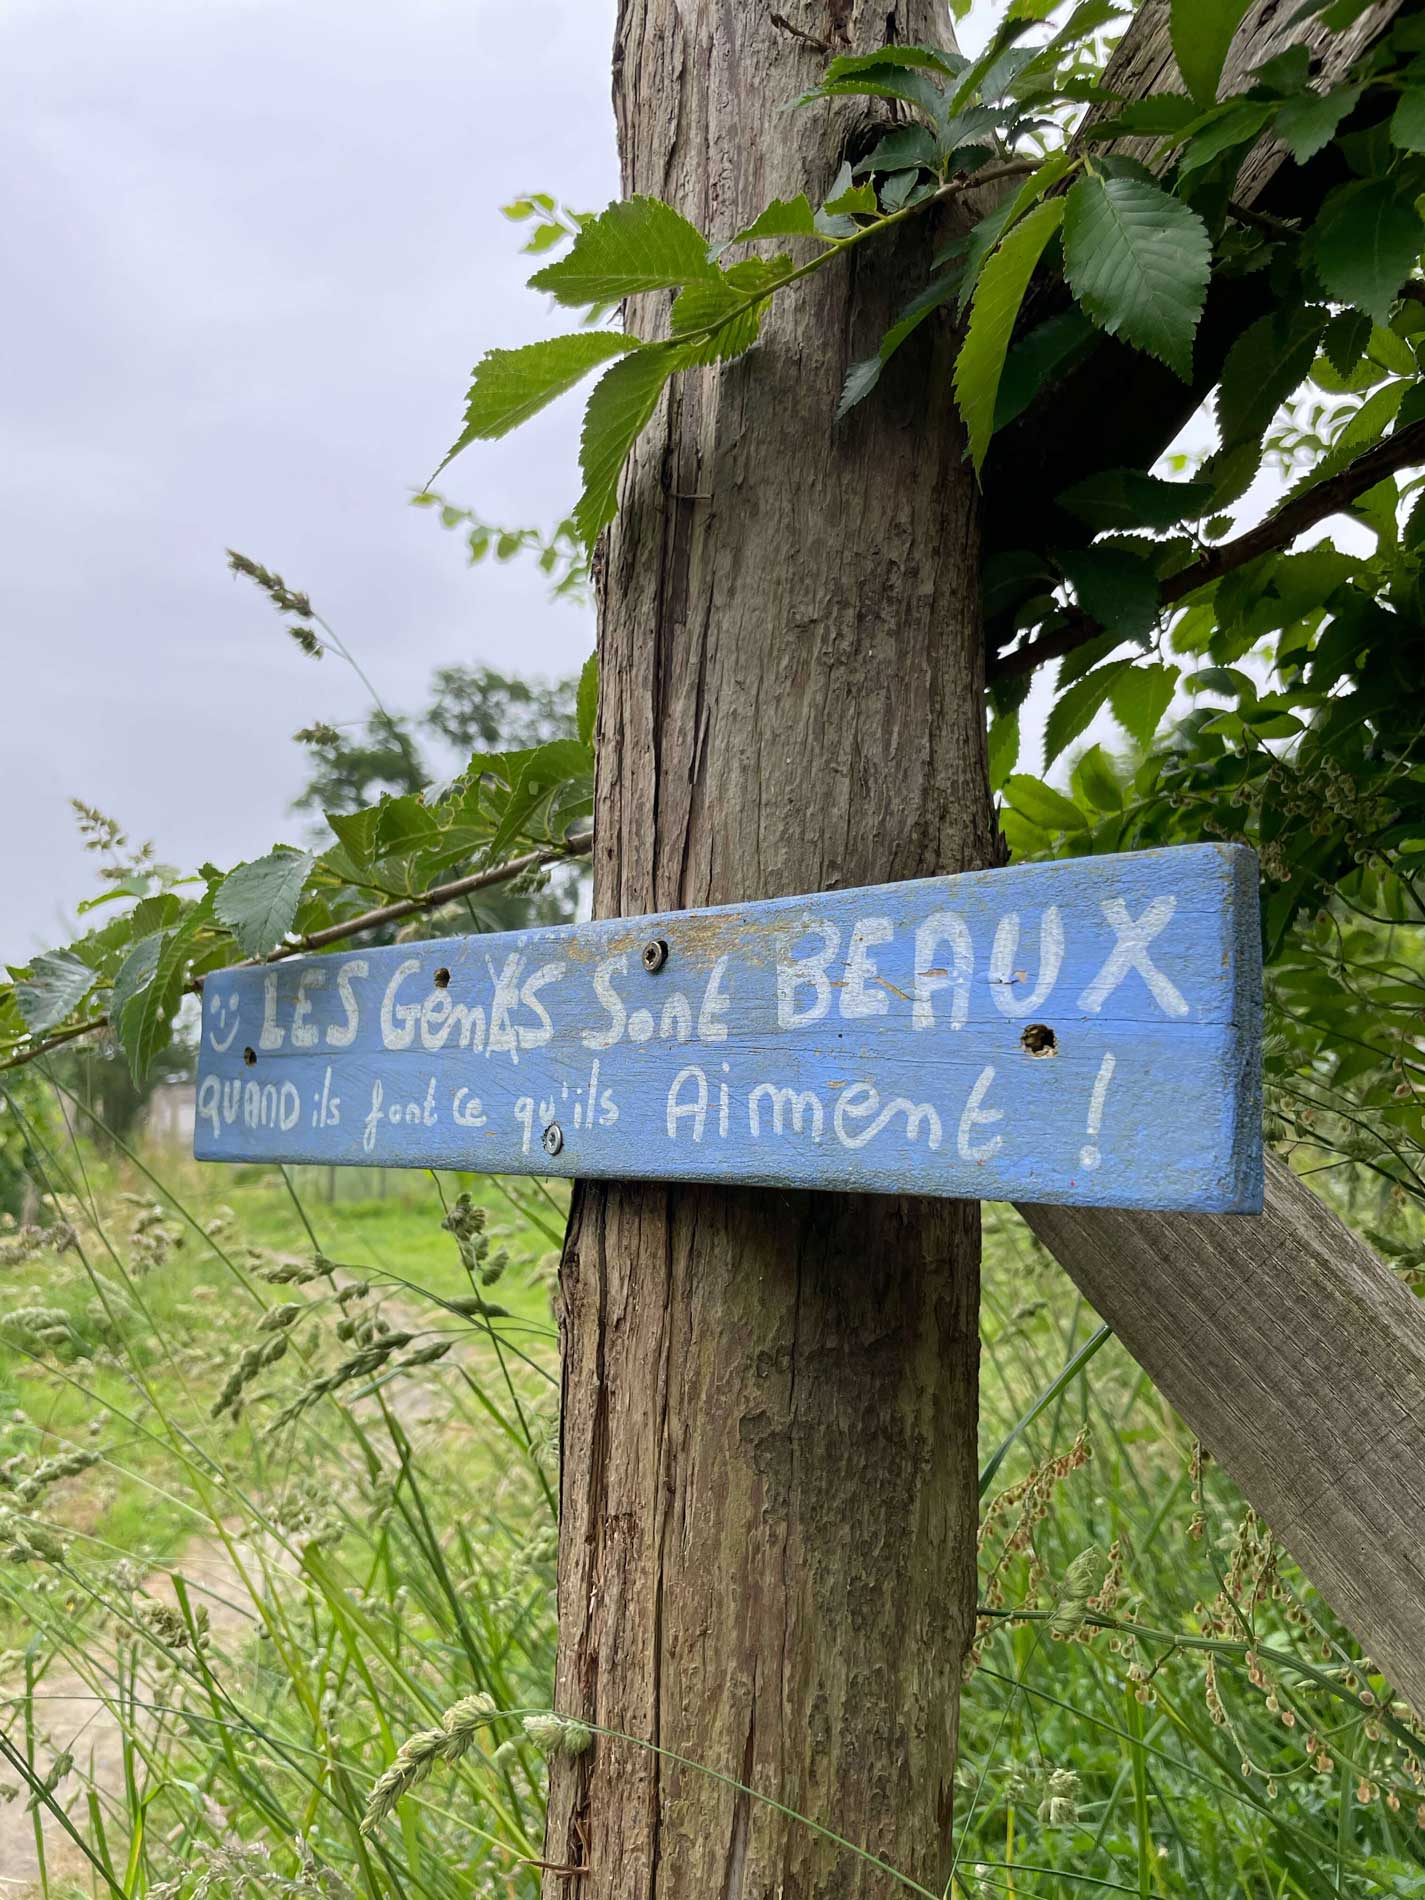 :) LES GenS Sont BEAUX
QUAND ils font ce qu'ils Aiment !